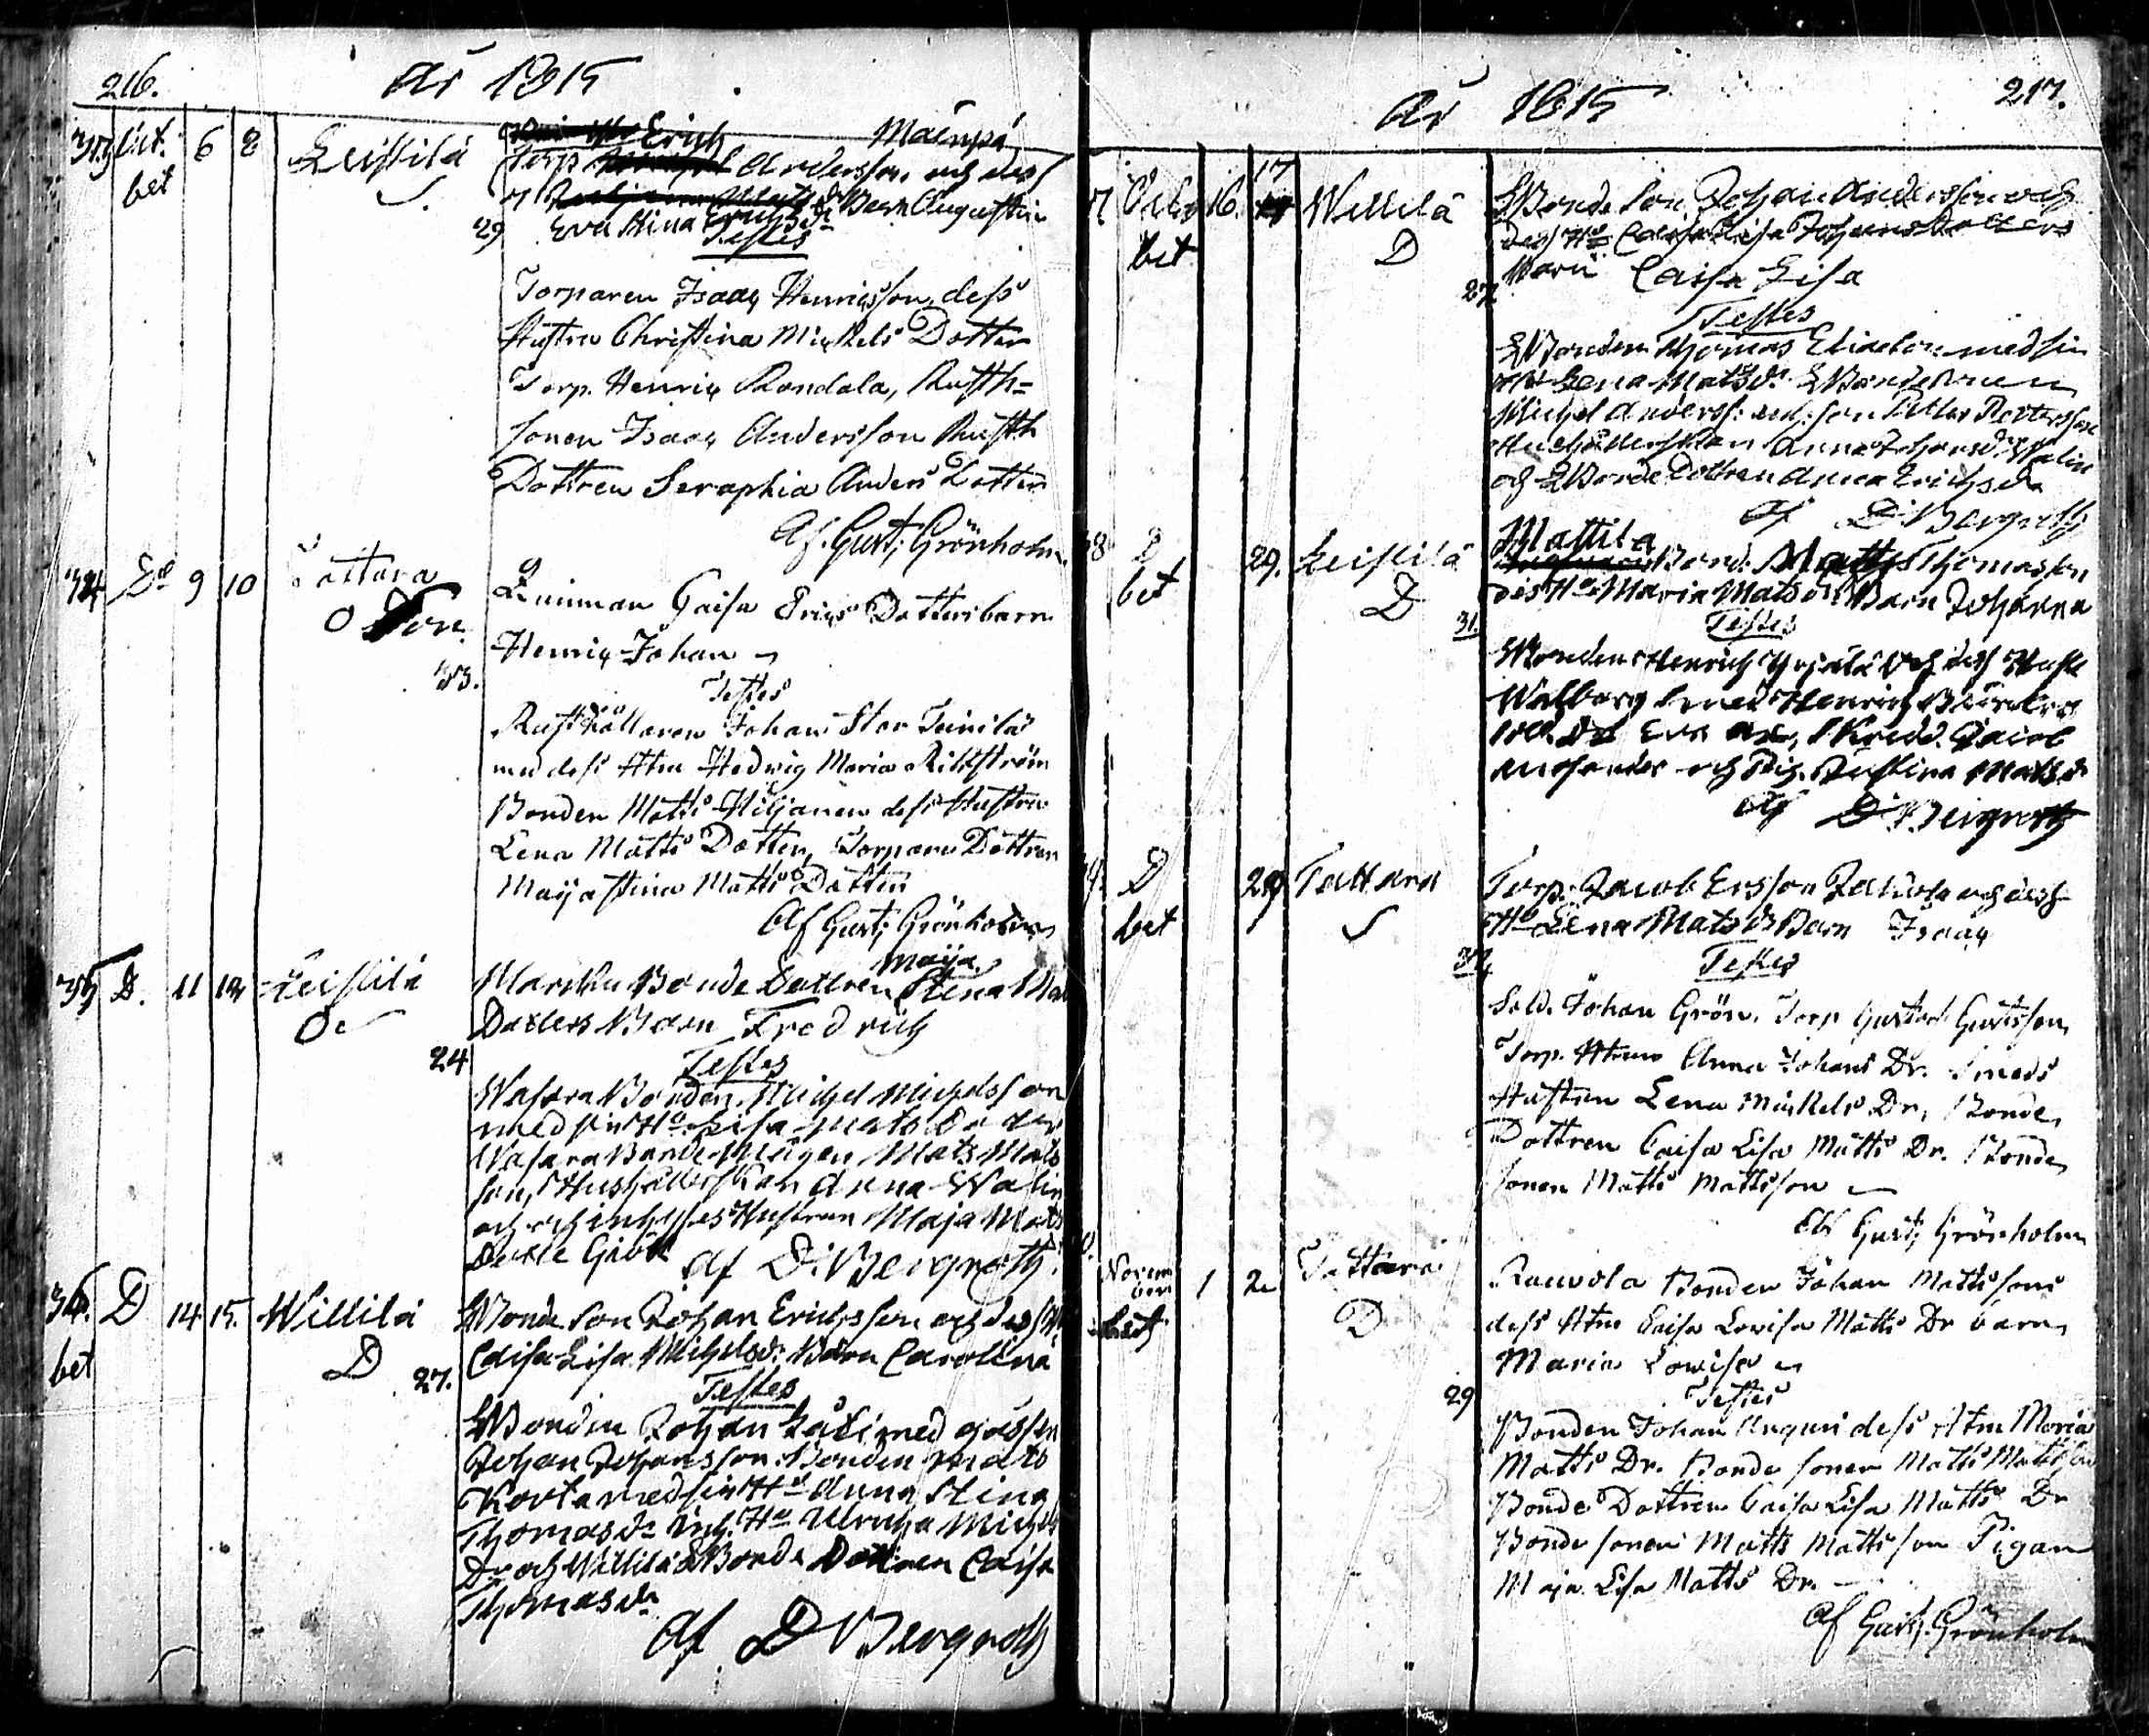 216.
år 1815
33 Oct. 6 8 Leistilä Erich Mäenpä
bet Torp Andersson och dess
Eva Stina Erichsdr Barn Augustin
29
Testes
Torparen Isaac Henricsson, dess
Hustru Christina Mickels Dotter
Torp. Henric Rondala, Rusth=
sonen Isaac Andersson Rusth
Dottren Seraphia Anders Dotter
Af. Gust; Grönholm
34 Do 9 10 Tattara Qvinman Caisa Erics Dotters barn
O Henric Johan
33.
Testes
Rusthållaren Johan Stor Teinilä
med dess Htru Hedwig Maria Rihtström
Bonden Matts Hiljanen dess Hustru
Lena Matts Dotter, Torpare Dottren
Maija Stina Matts Dotter
Af Gust; Grönholm
35 D. 11 12 Leistilä Bonde Dottren Maija Stina
Oe Dotters Barn Fredrich
24
Testes
Wasara Bonden Michel Michelsson
med sin Ho Lisa Mats Dotter
Wasara Bonde Drengen Mats Mats
son, Hushållerskan Anna Walin
och inhyses Hustrun Maja Mats
Af D: Bergroth
36. D 14 15. Willilä Bonde Son Johan Erichsson och dess
bet D Caisa Lisa Michelsdr Barn Carolina
27.
Testes
Bonden Johan med gossen
Johan Johansson. Bonden Mats
Korta med sin Ho Anna Stina
Thomasdr inh. Ho Ulricha Michels
Dr och Willilä Bonde Dottren Caisa
Thomasdr
Af D Bergroth
år 1815
217.
7 Octbr 16. 17 Willilä Bonde Son Johan Andersson och
bet D dess Ho Caisa Lisa Johans Dotters
Barn Caisa Lisa
27
Testes
Bonden Thomas Eliaeson med sin
Lena Matsdr Bonden
Michel Anderss: Petter Pettersson
Hushållerskan Anna Johansdr Walin
och Bonde Dottren Anna Erichsdr
Af D Bergroth
38 D 29. Leistilä Mattila
bet D Bond. Matts Thomasson
des Ho Maria Matsdr Barn Johanna
31.
Testes
Bonden Henrich Yrjälä och dess Hust
Walborg Smed Henrich
Eva Skredd. Jacob
och Pig. Justina Matsdr
Af D Bergroth
39. D 29 Tattara Torp. Jacob Ersson och dess
bet Ho Lena Matsdr Barn Isaac
32
Testes
Sold. Johan Grön, Torp Gustaf Gustsson,
Torp. Htrun Anna Johans Dr. Smeds
Hustrun Lena Mickels Dr, Bonde,
Dottren Caisa Lisa Matts Dr. Bonde
sonen Matts Mattsson
Af Gust; Grönholm
0. November 1 2 Tattara Rauvola Bonden Johan Mattssons
bet D dess Htru Caisa Lowisa Matts Dr barn,
Maria Lowisa
29
Testes
Bonden Johan Unguri dess Htru Maria
Matts Dr. Bonde sonen Matts Mattsson
Bonde Dottren Caisa Lisa Matts Dr
Bonde sonen Matts Mattsson Pigan
Maja Lisa Matts Dr.
Af Gust; Grönholm